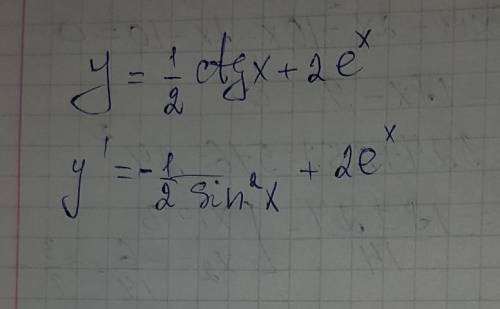 y = 1/2 ctgx + 2e^x
y' = -1/(2 sin²x) + 2e^x